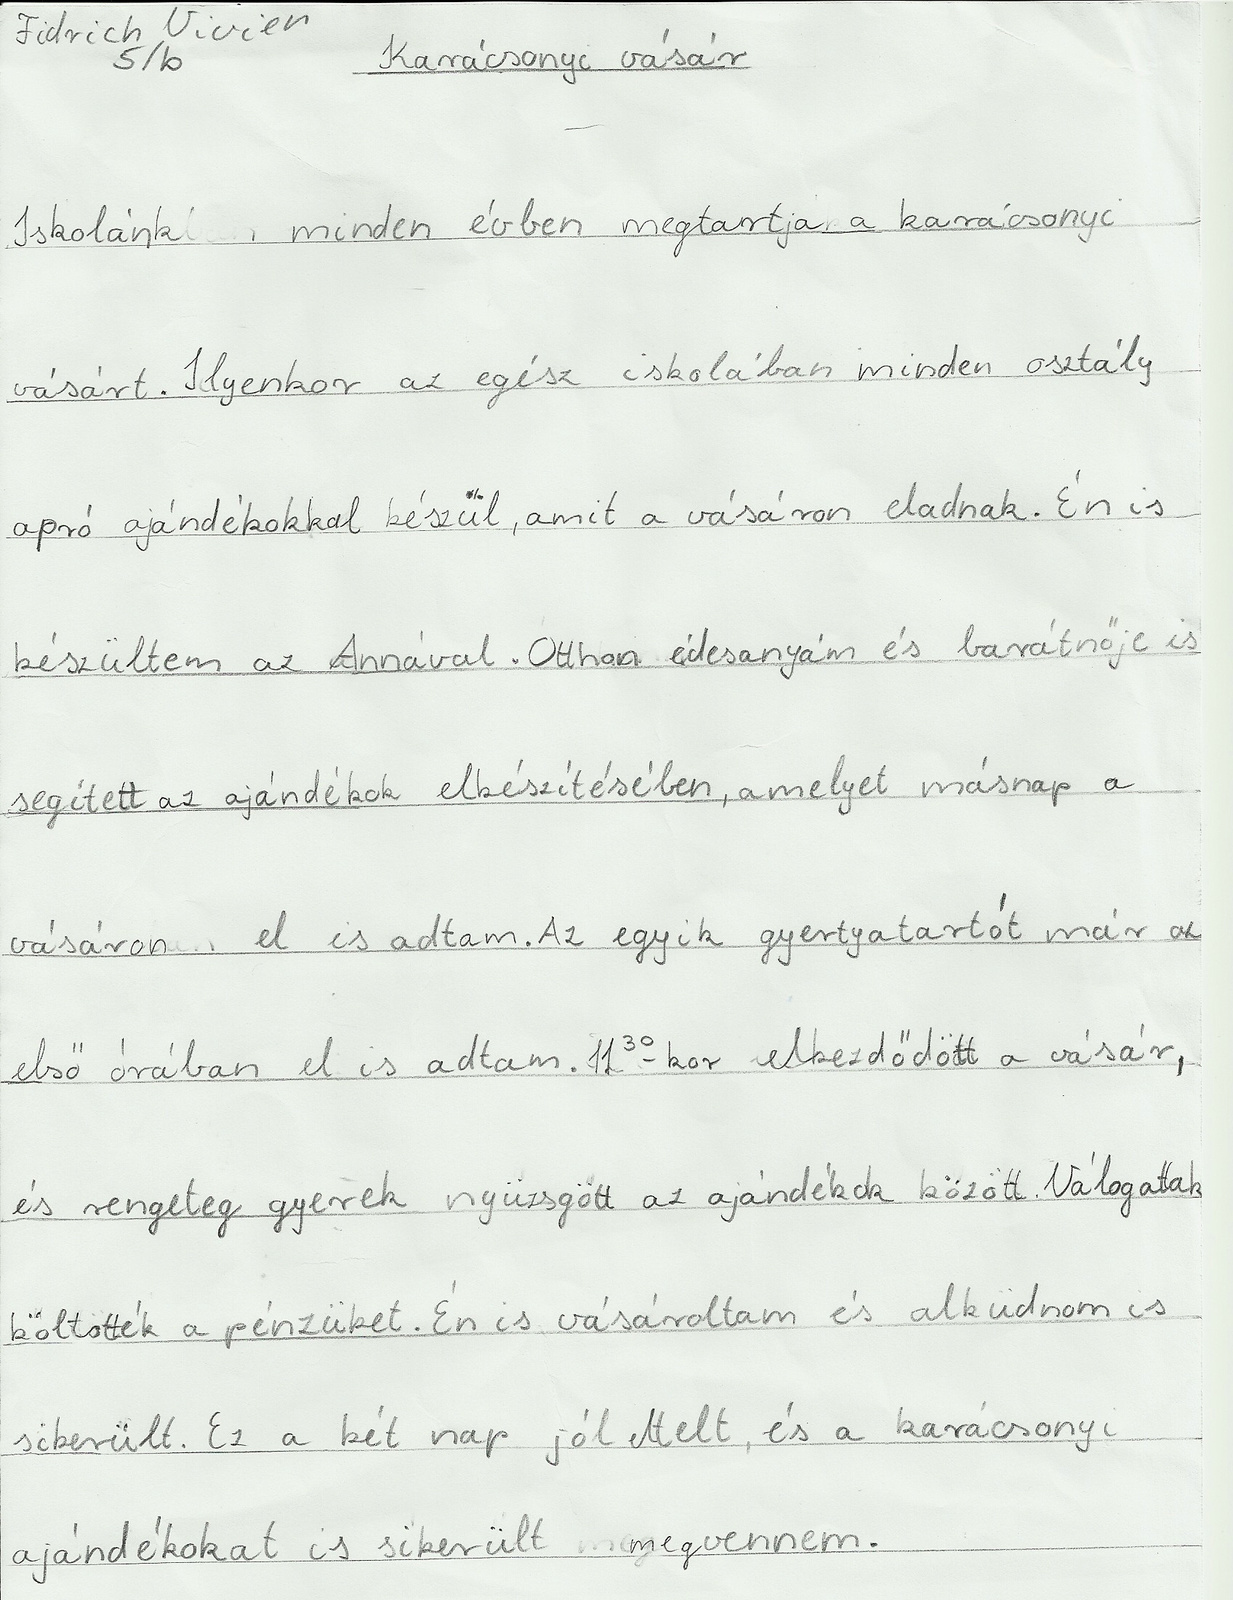 Fidrich Vivien
5/b
Karácsonyi vásár
Iskolánk minden évben megtartja a karácsonyi
vásárt. Ilyenkor az egész iskolában minden osztály
apró ajándékokkal készül, amit a vásáron eladnak. Én is
készültem az Annával. Otthon édesanyám és barátnője is
segített az ajándékok elkészítésében, amelyet másnap a
vásáron el is adtam. Az egyik gyertyatartót már az
első órában el is adtam. 11³⁰-kor elkezdődött a vásár,
és rengeteg gyerek nyüzsgött az ajándékok között. Válogattak
költötték a pénzüket. Én is vásároltam és alkudnom is
sikerült. Ez a két nap jól telt, és a karácsonyi
ajándékokat is sikerült megvennem.